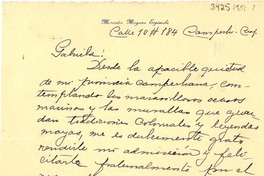 3425 1951 ?
Mercedes Mogner Españolé
Calle 10 # 184 Campeche, Cam
Gabriela:
Desde la apacible quietud
de mi provincia campechana, con-
templando los maravillosos ocasos
marinos y las murallas que guar-
dan tradiciones coloniales y leyendas
mayas, me es dulcemente grato
rendirle mi admiración y feli
citarla fraternalmente por el